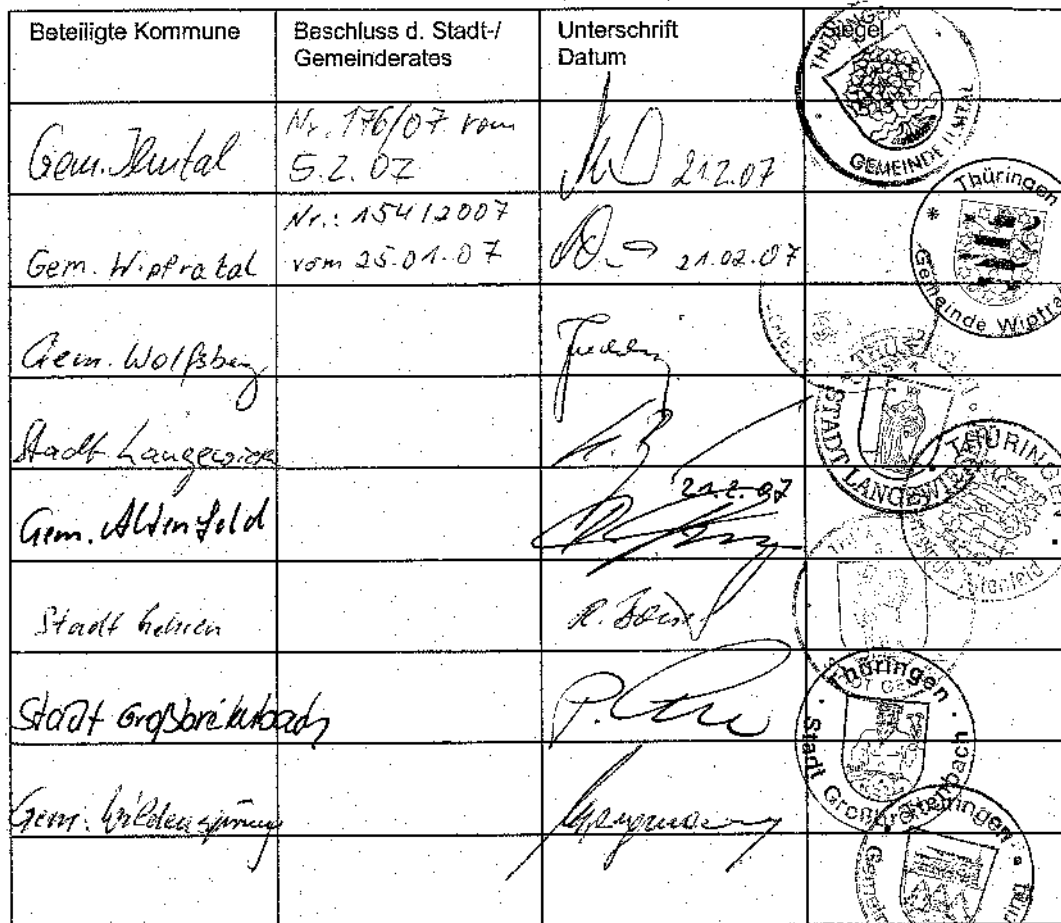 Beteiligte Kommune
Beschluss d. Stadt-/
Gemeinderates
Unterschrift
Datum
Siegel
Gem. Ilmtal
Nr. 176/07 vom
5.2.07
21.2.07
THÜRINGEN
GEMEINDE ILMTAL
Gem. Wipfratal
Nr.: 154/2007
vom 25.01.07
21.02.07
Thüringen
Gemeinde Wipfra
Gem. Wolfsberg
Stadt Langewiesen
STADT LANGEWIE
THÜRINGEN
Gem. Altenfeld
21.2.07
Altenfeld
Stadt Gehren
Stadt Großbreitenbach
Thüringen
Stadt Großbreitenbach
Gem. Wildenspring